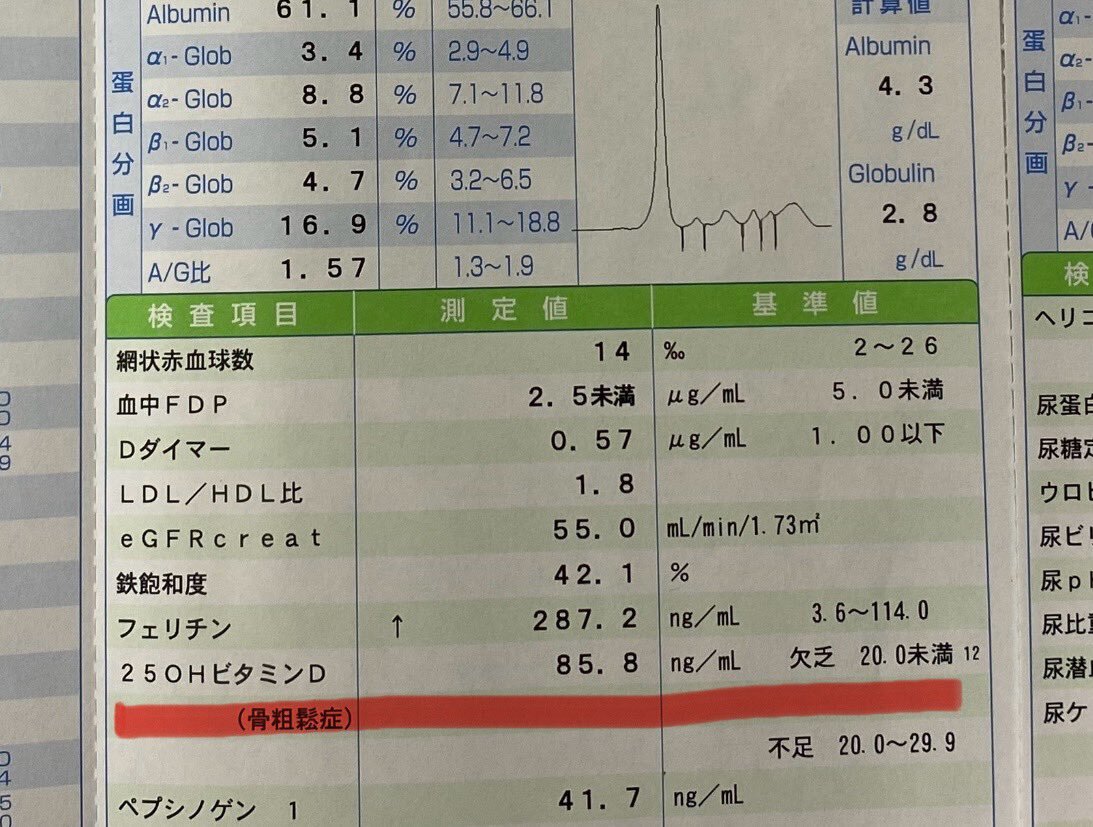 Albumin 61.1 % 55.8～66.1
α1-Glob 3.4 % 2.9～4.9
α2-Glob 8.8 % 7.1～11.8
β1-Glob 5.1 % 4.7～7.2
β2-Glob 4.7 % 3.2～6.5
γ-Glob 16.9 % 11.1～18.8
A/G比 1.57 1.3～1.9
蛋白分画
計算値
Albumin
4.3
g/dL
Globulin
2.8
g/dL
検査項目 測定値 基準値
網状赤血球数 14 ‰ 2～26
血中FDP 2.5未満 μg/mL 5.0未満
Dダイマー 0.57 μg/mL 1.00以下
LDL/HDL比 1.8
eGFRcreat 55.0 mL/min/1.73㎡
鉄飽和度 42.1 %
フェリチン ↑ 287.2 ng/mL 3.6～114.0
25OHビタミンD 85.8 ng/mL 欠乏 20.0未満 12
(骨粗鬆症)
不足 20.0～29.9
ペプシノゲン 1 41.7 ng/mL
蛋白分画
α1-
α2-
β1-
β2-
γ
A/
検
ヘリコ
尿蛋白
尿糖定
ウロビ
尿ビリ
尿p
尿比重
尿潜
尿ケ